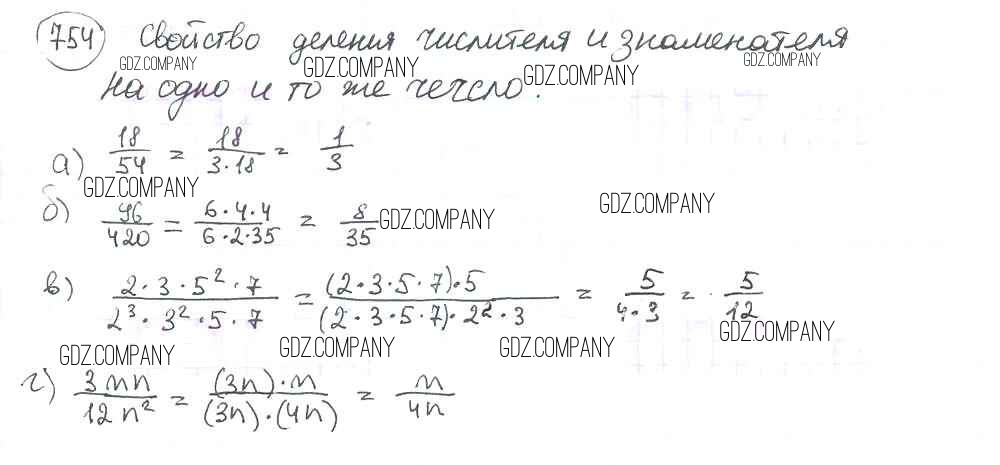 754 Свойство деления числителя и знаменателя
GDZ.COMPANY GDZ.COMPANY GDZ.COMPANY GDZ.COMPANY
на одно и то же чечсло.
а) 18/54 = 18/3·18 = 1/3
GDZ.COMPANY
б) 96/420 = 6·4·4/6·2·35 = 8/35 GDZ.COMPANY GDZ.COMPANY
в) 2·3·5²·7/2³·3²·5·7 = (2·3·5·7)·5/(2·3·5·7)·2²·3 = 5/4·3 = 5/12
GDZ.COMPANY GDZ.COMPANY GDZ.COMPANY GDZ.COMPANY
г) 3mn/12n² = (3n)·m/(3n)·(4n) = m/4n